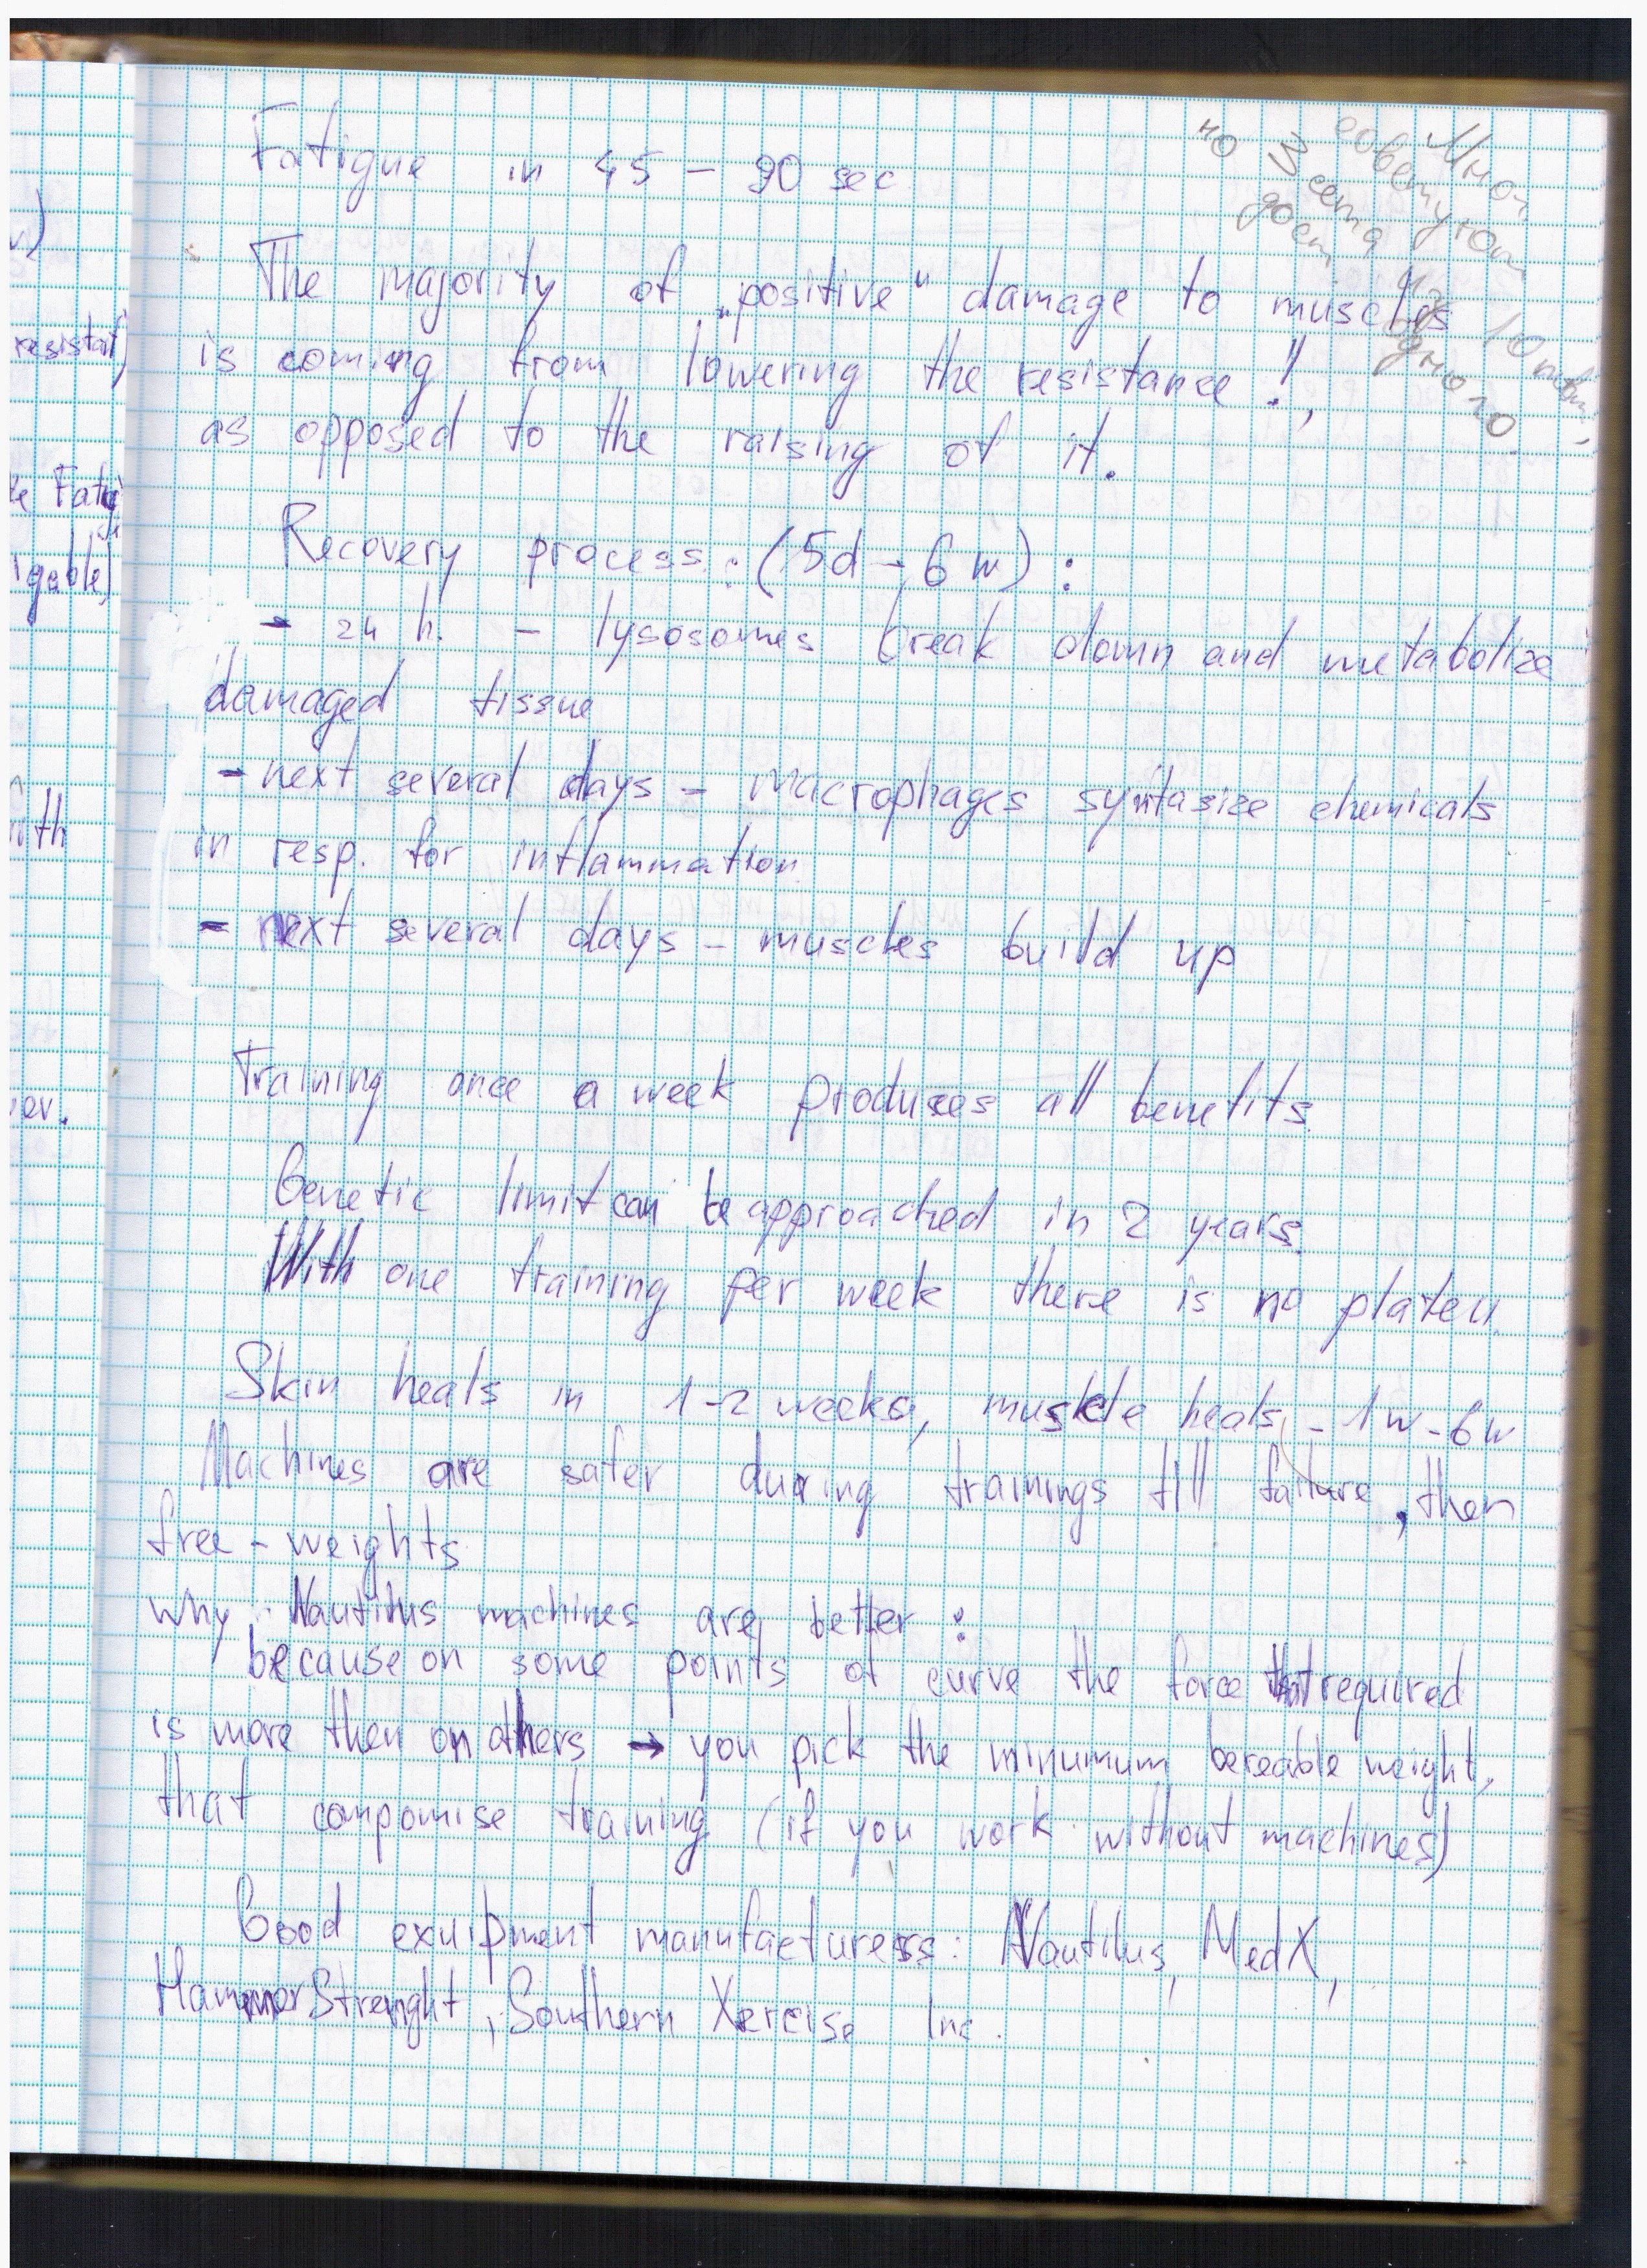 Fatigue in 45 - 90 sec.
но 3 сета
дост.
советуют
из
одного.
The majority of „positive" damage to muscles
is coming from lowering the resistance!,
as opposed to the raising of it.
Recovery process: (5d - 6 w):
- 24 h. - lysosomes break down and metabolize
damaged tissue
- next several days - macrophages syntasize chemicals
in resp. for inflammation.
- next several days - muscles build up
Training once a week produces all benefits.
Genetic limit can be approached in 2 years.
With one training per week there is no plateu.
Skin heals in 1-2 weeks, muskle heals - 1w - 6w
Machines are safer during trainings till failure, then
free - weights
Why Nautilus machines are better:
because on some points of curve the force that required
is more then on others → you pick the minumum bereable weight,
that compomise training (if you work without machines)
Good exuipment manufacturerss: Nautilus, MedX,
Hammor Strenght, Southern Xercise Inc.
resistat)
e Fatig
igable)
ith
er.